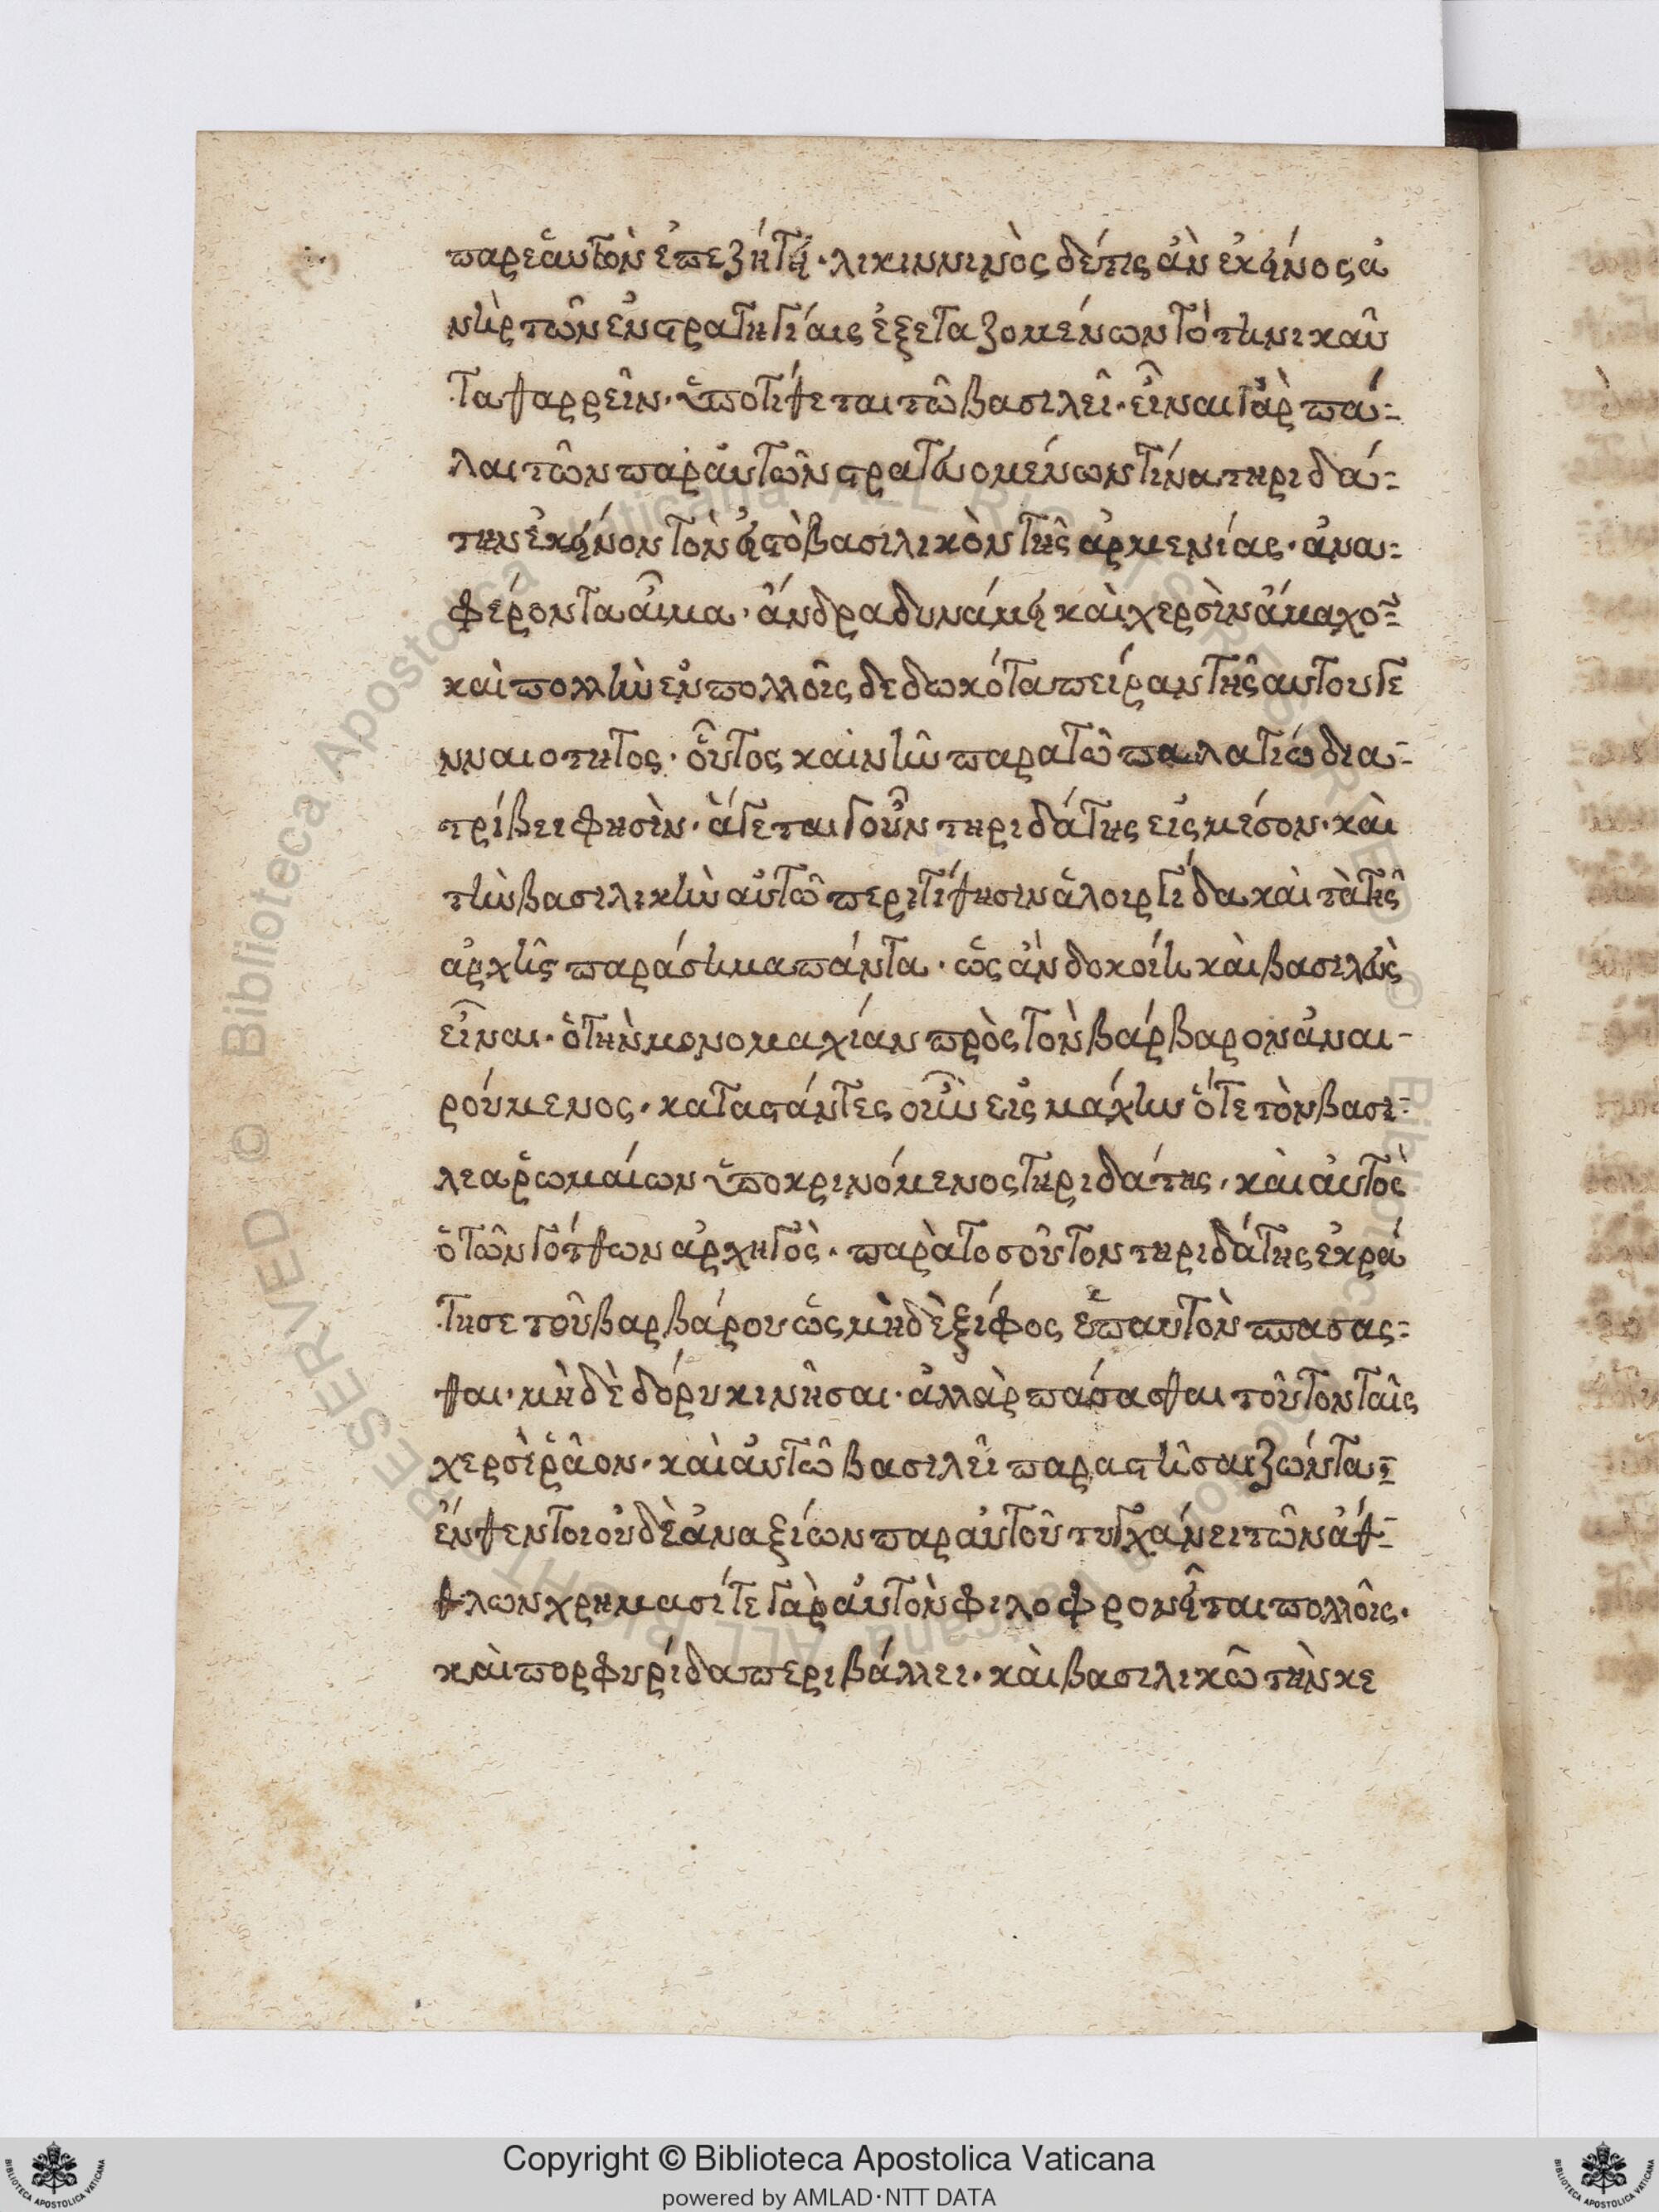 παρεἁυτὸν ἐπεζήτει· λικιννινὸς δέ τις ἀν ἐκεῖνος ἀ
νὴρ τῶν ἐν στρατηγίαις ἐξεταζομένων τὸ τηνικαῦ
τα θαρρεῖν· ὑποτίθεται τῶ βασιλεῖ· εἶναι γὰρ πά-
λαι τῶν παρ αὐτῶν στρατευομένων τίνα τηριδά-
την ἐκεῖνον τὸν εἰς τὸ βασιλικὸν τῆς ἀρμενίας· ἀνα-
φέροντα αἷμα· ἄνδρα δυνάμει καὶ χερσὶν ἄμαχον
καὶ πολλὴν ἐν πολλοῖς δεδωκότα πεῖραν τῆς αυτου γε
νναιοτητος· οὗτος καὶ νῦν παρα τῶ παλατίω δια-
τρίβει φησὶν· ἄγεται γοῦν τηριδάτης εἰς μέσον· καὶ
τὴν βασιλικὴν αὐτῶ περιτίθησιν ἁλοιργίδα καὶ τὰ τῆς
ἀρχῆς παράσημα πάντα· ὡς ἂν δοκοίη καὶ βασιλεὺς
εἶναι· ὁ τὴν μονομαχίαν πρὸς τὸν βάρβαρον ἀναι-
ρούμενος· καταστάντες οὖν εἰς μάχην ὅτε τὸν βασι-
λεα ῥωμαίων ὑποκρινόμενος τηριδάτης· καὶ αὐτὸς
ὁ τῶν γότθων ἀρχηγὸς· παρὰ τοσοῦτον τηριδάτης ἐκρά
τησε τοῦ βαρβάρου ὡς μὴ δὲ ξίφος ἐπ αυτὸν σπασας-
θαι· μὴ δὲ δόρυ κινῆσαι· ἀλλ ἁρπάσασθαι τοῦτον ταῖς
χερσὶ ῥᾶον· καὶ αὐτῶ βασιλεῖ παραστῆσαι ζῶντα·
ἔνθεν τοι οὐδὲ ἀναξίων παρ αὐτοῦ τυγχάνει τῶν ἄθ-
θλων χρημασί τε γὰρ αὐτὸν φιλοφρονεῖται πολλοῖς·
καὶ πορφυρίδα περιβάλλει· καὶ βασιλικῶ τὴν κε
Copyright © Biblioteca Apostolica Vaticana
powered by AMLAD·NTT DATA